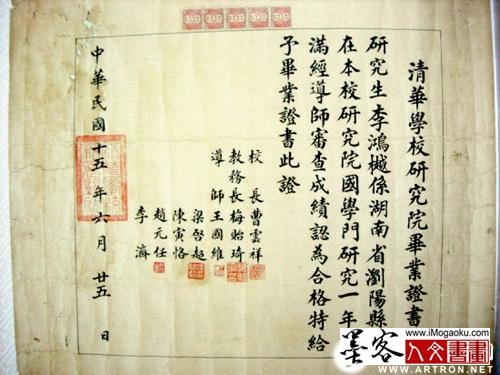 清華學校研究院畢業證書
研究生李鴻樾係湖南省瀏陽縣人
在本校研究院國學門研究一年期
滿經導師審查成績認為合格特給
予畢業證書此證
校長曹雲祥
教務長梅貽琦
導師王國維
梁啓超
陳寅恪
趙元任
李濟
中華民國十五年六月廿五日
墨客
www.iMogaoku.com
WWW.ARTRON.NET